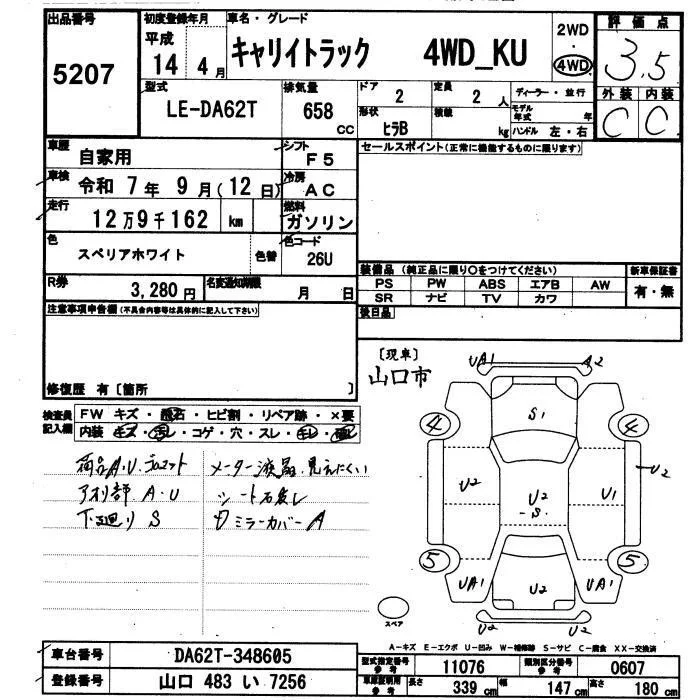 出品番号
5207
初度登録年月
平成
14 4月
車名・グレード
キャリイトラック 4WD_KU
2WD
・
4WD
評価点
3.5
外装 内装
C C
型式
LE-DA62T
排気量
658 CC
ドア
2
形状
ヒラB
定員
2 人
積載
kg
ディーラー・並行
モデル年式 年
ハンドル 左・右
車歴
自家用
シフト
F5
車検
令和 7年 9月(12日)
冷房
AC
走行
12万9千162 km
燃料
ガソリン
色
スペリアホワイト
色替
色コード
26U
R券
3,280円
名変通知期限
月 日
セールスポイント(正常に機能するものに限ります)
装備品 (純正品に限り○をつけてください)
PS PW ABS エアB AW
SR ナビ TV カワ
新車保証書
有・無
後日品
注意事項申告欄(不具合内容等は具体的に記入して下さい)
修復歴 有〔箇所 〕
検査員記入欄
FW キズ・飛石・ヒビ割・リペア跡・×要
内装 キズ・汚レ・コゲ・穴・スレ・キレ・破レ
荷台A.U. メーター液晶.見えにくい
アオリ部 A.U シート
下廻り S ミラーカバーA
〔現車〕
山口市
UA1 A2
S1
4 4
U2 U2 U1 U2
S
5 5
UA1 U2 UA1
U2 U2
スペア
A-キズ E-エクボ U-凹み W-補修跡 S-サビ C-腐食 XX-交換済
車台番号
DA62T-348605
登録番号
山口 483 い 7256
型式指定番号
参考
11076
類別区分番号
参考
0607
車庫証明用
参考
長さ 339 cm
幅 147 cm
高さ 180 cm